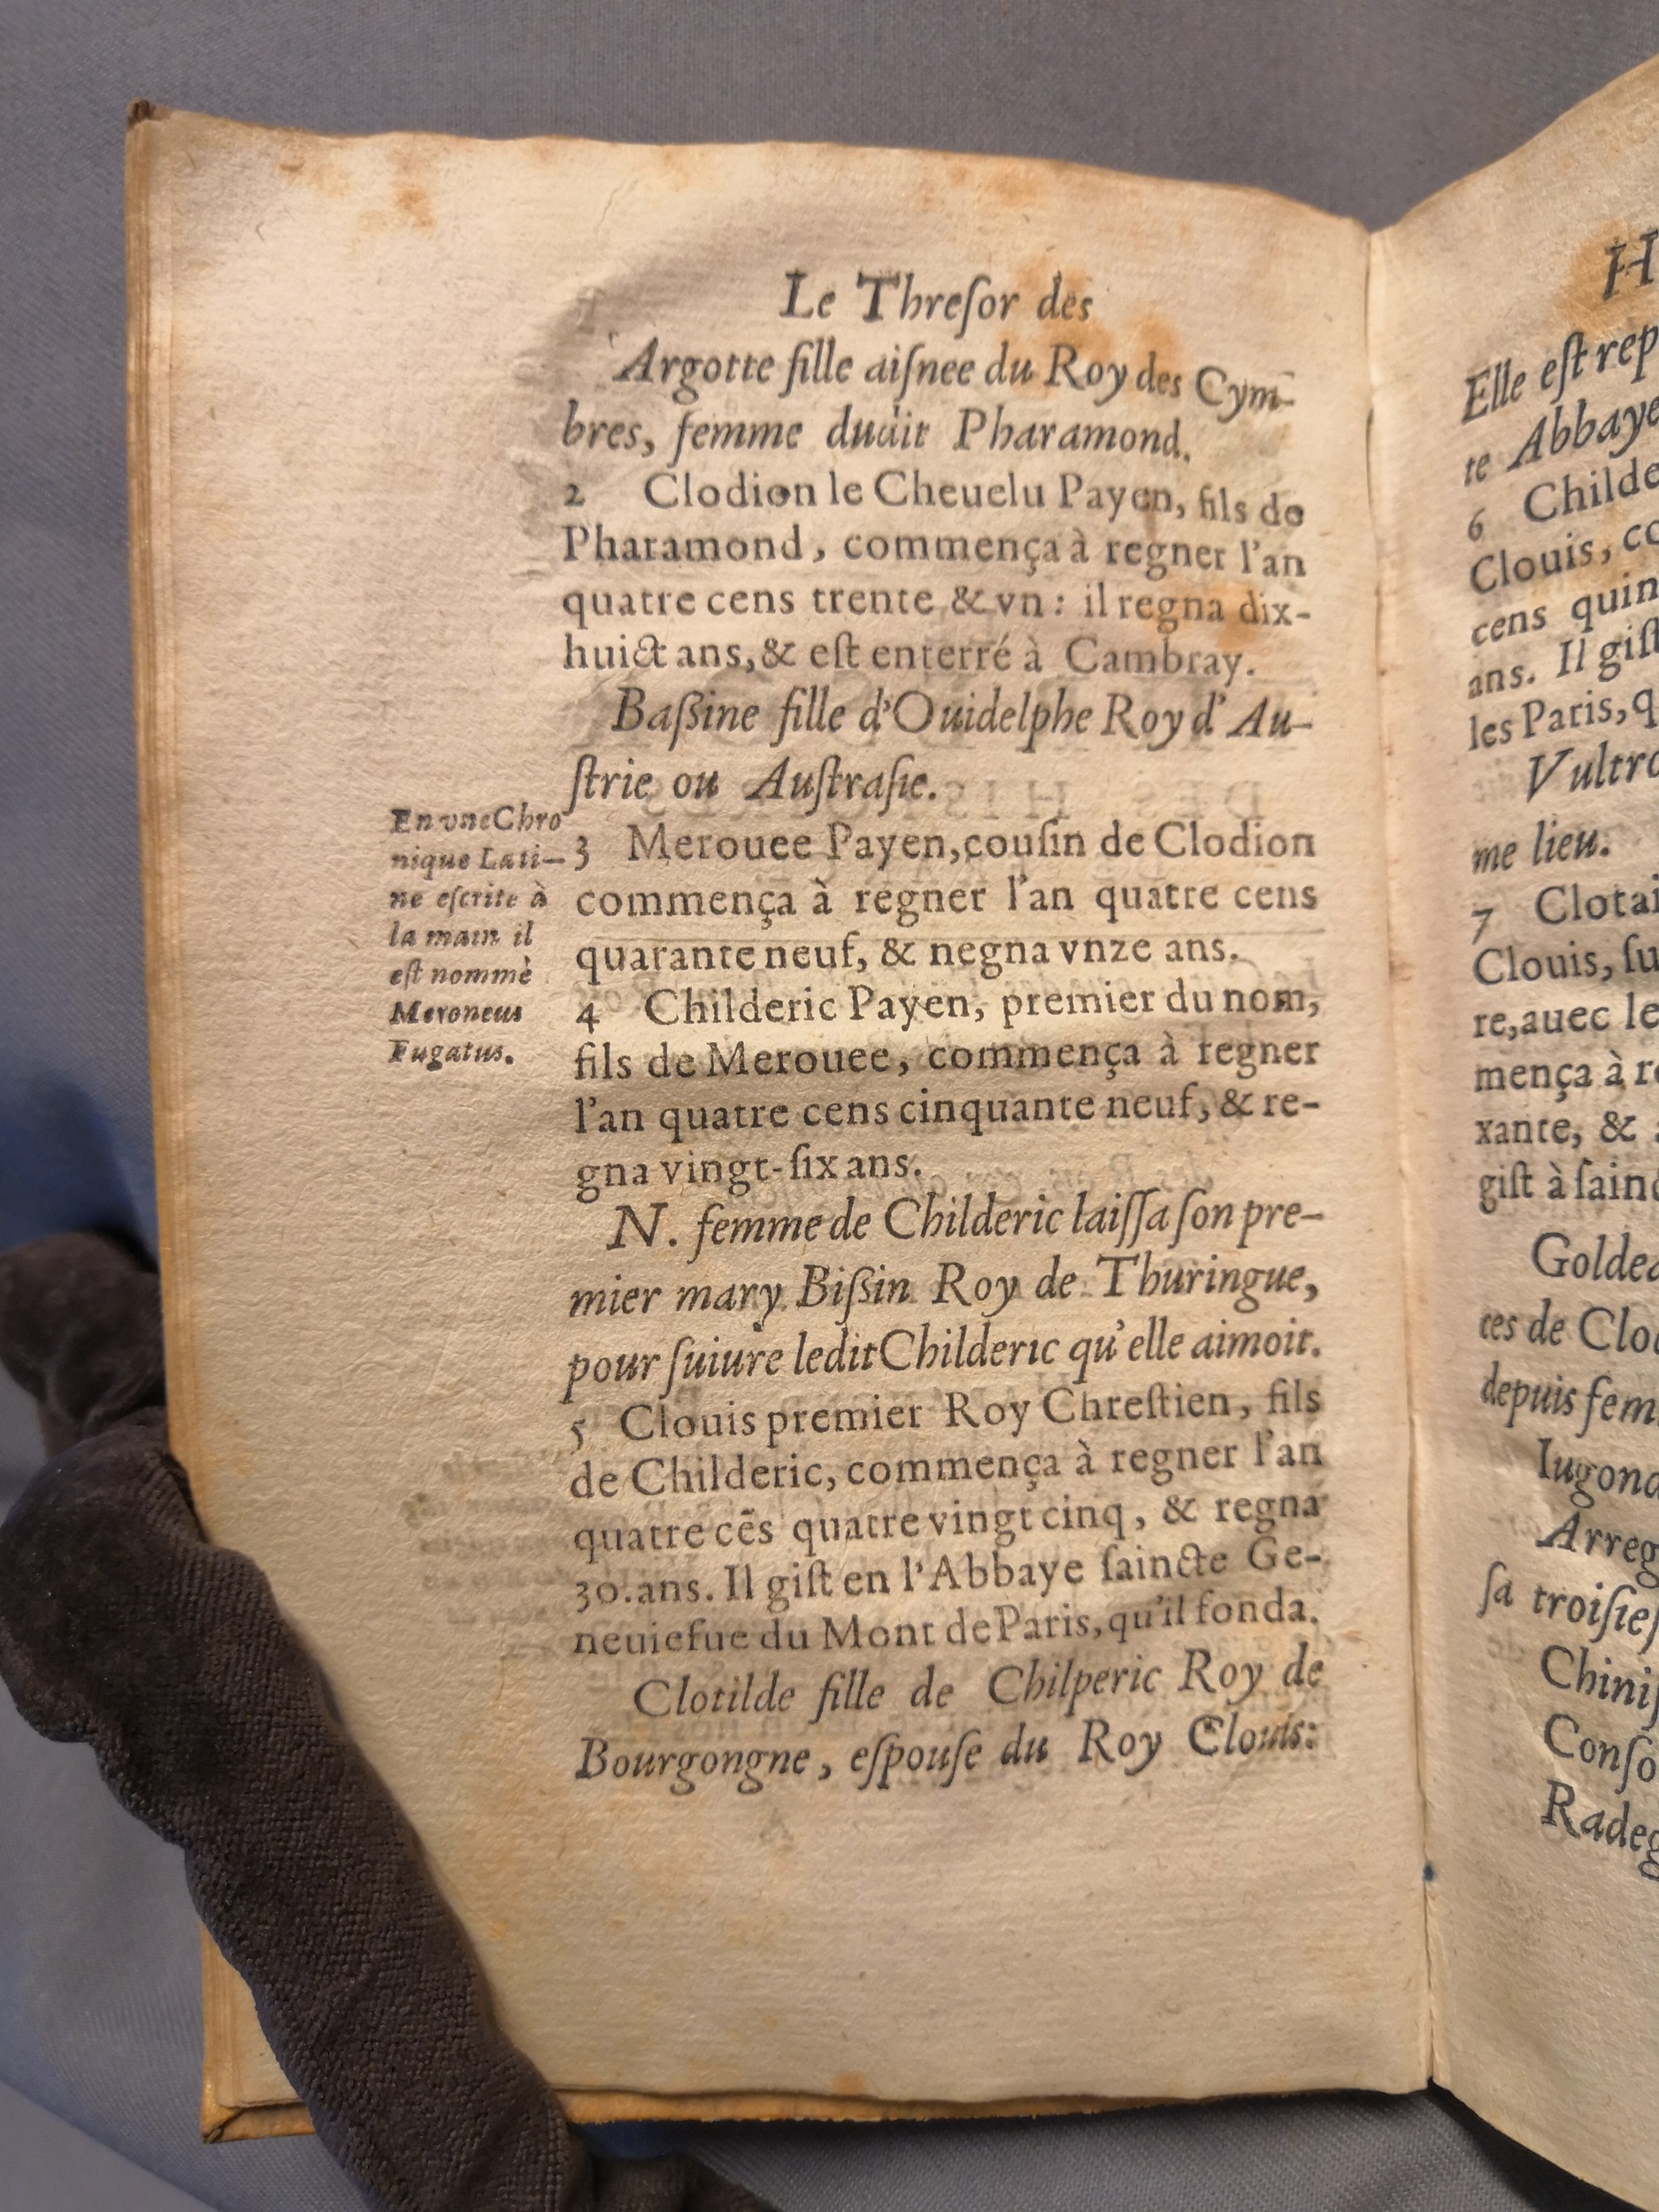 Le Threſor des
Argotte fille aiſnee du Roy des Cym-
bres, femme dudit Pharamond.
2 Clodion le Cheuelu Payen, fils de
Pharamond, commença à regner l'an
quatre cens trente & vn : il regna dix-
huict ans, & eſt enterré à Cambray.
Baſſine fille d'Ouidelphe Roy d'Au-
ſtrie ou Auſtraſie.
En vne Chro
nique Lati-
ne eſcrite à
la main il
eſt nommé
Meroneus
Fugatus.
3 Merouee Payen, couſin de Clodion
commença à regner l'an quatre cens
quarante neuf, & negna vnze ans.
4 Childeric Payen, premier du nom,
fils de Merouee, commença à regner
l'an quatre cens cinquante neuf, & re-
gna vingt-ſix ans.
N. femme de Childeric laiſſa ſon pre-
mier mary Biſſin Roy de Thuringue,
pour ſuiure ledit Childeric qu'elle aimoit.
5 Clouis premier Roy Chreſtien, fils
de Childeric, commença à regner l'an
quatre cẽs quatre vingt cinq, & regna
30. ans. Il giſt en l'Abbaye ſaincte Ge-
neuiefue du Mont de Paris, qu'il fonda.
Clotilde fille de Chilperic Roy de
Bourgongne, eſpouſe du Roy Clouis:
H
Elle eſt rep
te Abbaye
6 Childe
Clouis, co
cens quin
ans. Il giſt
les Paris, q
Vultro
me lieu.
7 Clotai
Clouis, ſu
re, auec le
mença à re
xante, &
giſt à ſainc
Goldea
ces de Clo
depuis fem
Iugond
Arreg
ſa troiſieſ
Chiniſ
Conſo
Radeg